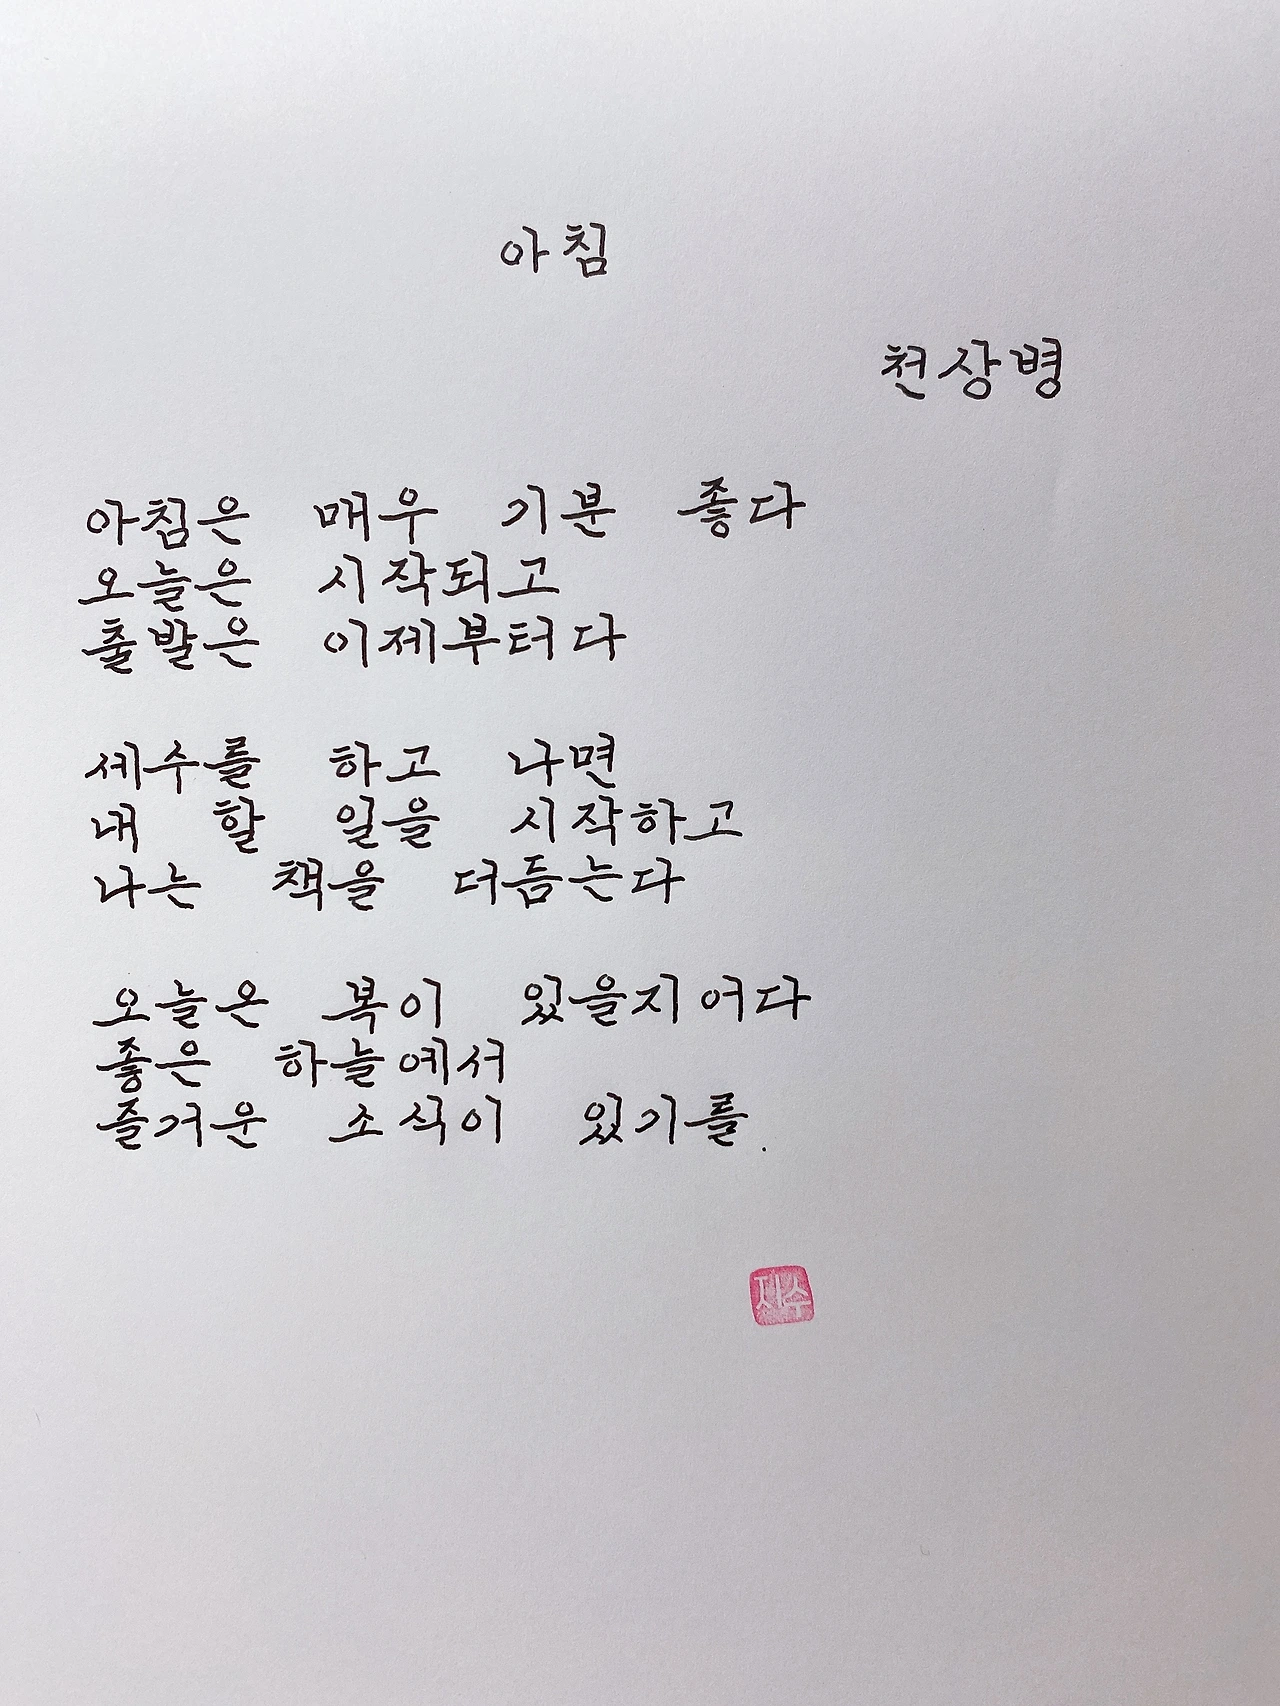 아침
천상병
아침은 매우 기분 좋다
오늘은 시작되고
출발은 이제부터다
세수를 하고 나면
내 할 일을 시작하고
나는 책을 더듬는다
오늘은 복이 있을지어다
좋은 하늘에서
즐거운 소식이 있기를.
지수